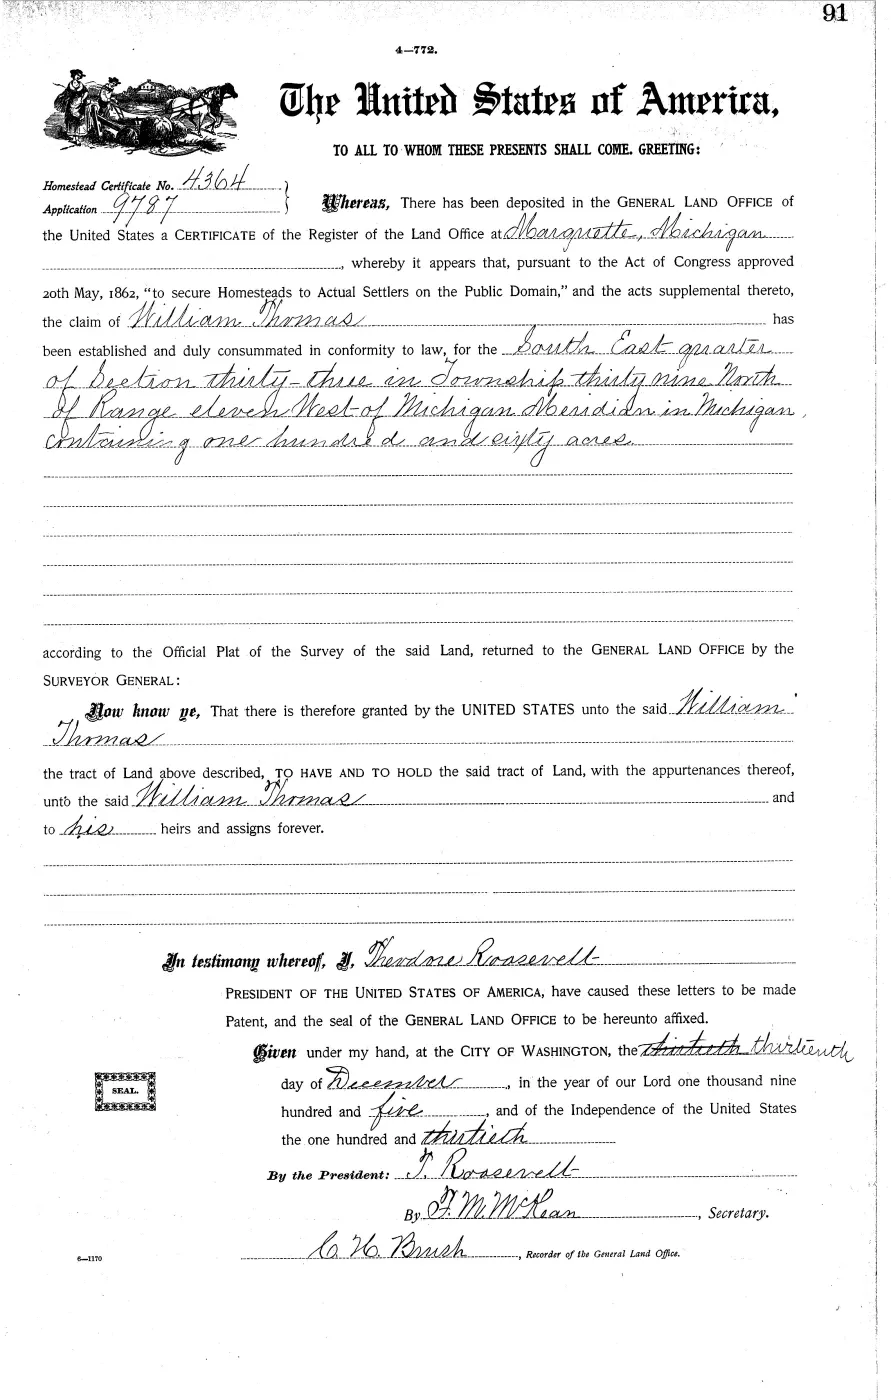 91
4—772.
The United States of America,
TO ALL TO WHOM THESE PRESENTS SHALL COME. GREETING:
Homestead Certificate No. 4364
Application 9787
Whereas, There has been deposited in the GENERAL LAND OFFICE of
the United States a CERTIFICATE of the Register of the Land Office at Marquette, Michigan
, whereby it appears that, pursuant to the Act of Congress approved
20th May, 1862, “to secure Homesteads to Actual Settlers on the Public Domain,” and the acts supplemental thereto,
the claim of William Thomas has
been established and duly consummated in conformity to law, for the South East quarter
of Section thirty-three in Township thirty nine North
of Range eleven West of Michigan Meridian in Michigan,
containing one hundred and sixty acres.
according to the Official Plat of the Survey of the said Land, returned to the GENERAL LAND OFFICE by the
SURVEYOR GENERAL:
Now know ye, That there is therefore granted by the UNITED STATES unto the said William
Thomas
the tract of Land above described, TO HAVE AND TO HOLD the said tract of Land, with the appurtenances thereof,
unto the said William Thomas and
to his heirs and assigns forever.
In testimony whereof, I, Theodore Roosevelt
PRESIDENT OF THE UNITED STATES OF AMERICA, have caused these letters to be made
Patent, and the seal of the GENERAL LAND OFFICE to be hereunto affixed.
Given under my hand, at the CITY OF WASHINGTON, the thirtieth thirteenth
day of December, in the year of our Lord one thousand nine
hundred and five, and of the Independence of the United States
the one hundred and thirtieth
SEAL.
By the President: T. Roosevelt
By F. M. McKean, Secretary.
C. H. Brush, Recorder of the General Land Office.
6—1170